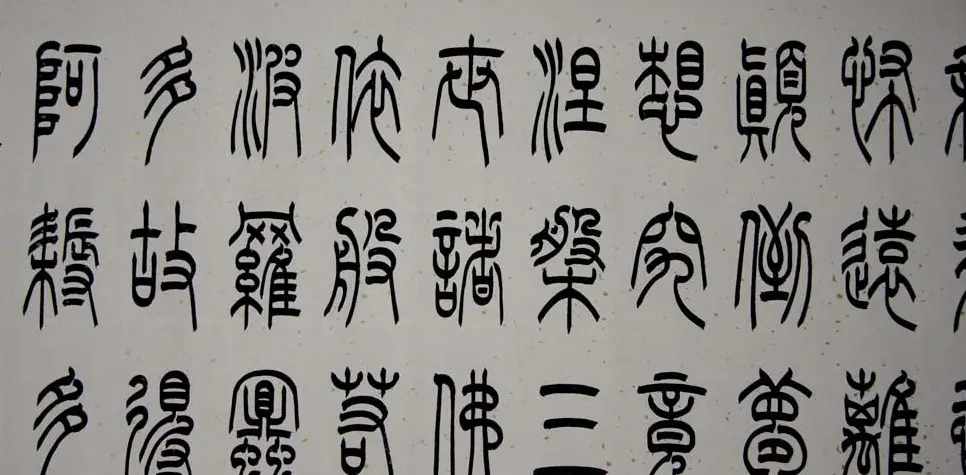 怖遠離
顛倒夢
想究竟
涅槃三
世諸佛
依般若
波羅蜜
多故得
阿耨多